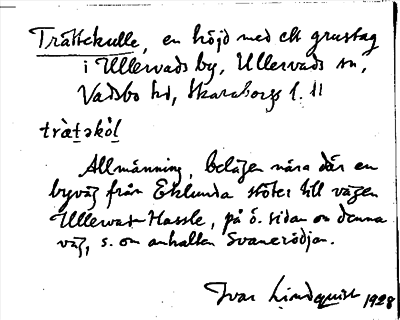 Trättekulle, en höjd med ett grustag
i Ullervads by, Ullervads sn,
Vadsbo hd, Skaraborgs l.
tràtəkòl
Allmänning, belägen nära där en
byväg från Eklunda stöter till vägen
Ullervad-Hassle, på ö. sidan om denna
väg, s. om anhalten Svaneródjan.
Ivar Lindquist 1928